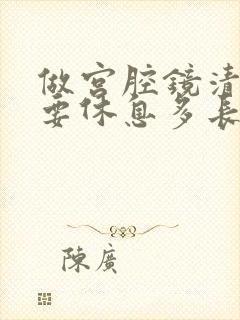 做宫腔鏡清
要休息多長
陳廣